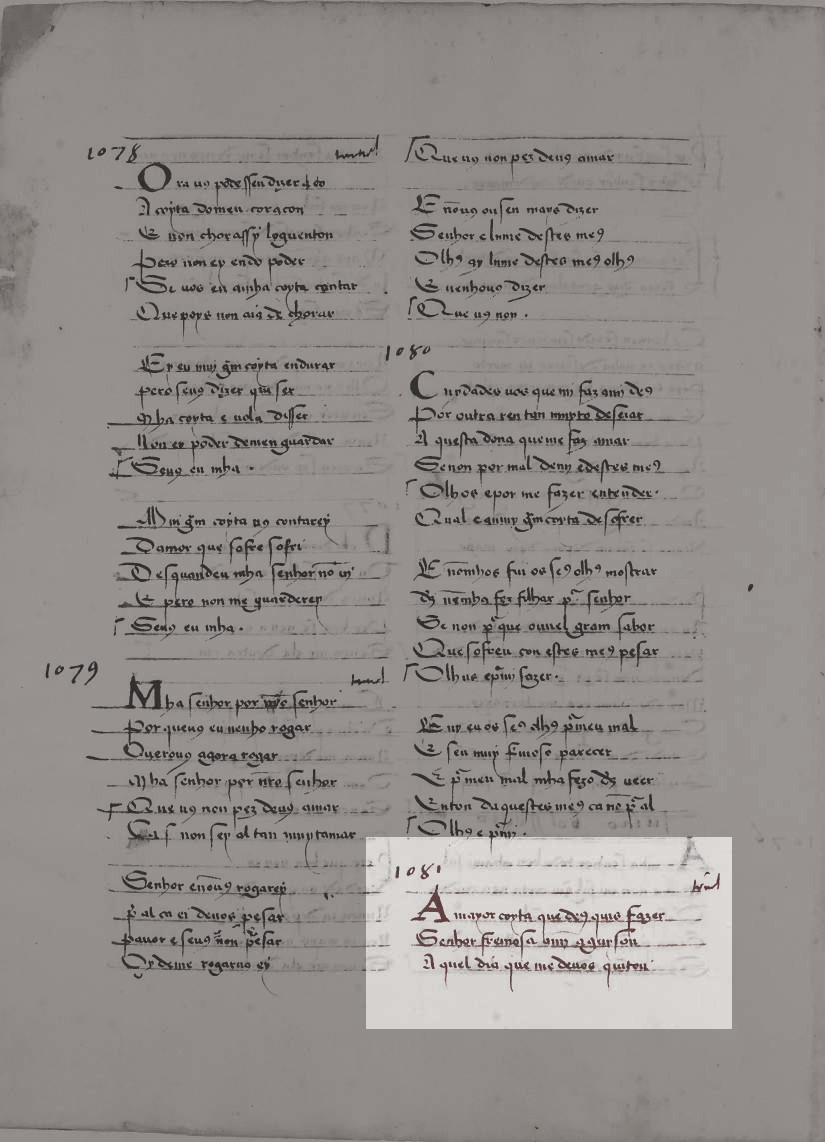 1078
Ora uꝯ podessen dizer q̄ eo
A coyta domeu coraçon
E non chorassy loguenton
Pero non ey endo poder
Se uos eu mīha coyta contar
Que poys non aia de chorar
Ey eu muy gm̄ coyta endurar
pero seuꝯ dizer
Mha coyta e uola disser
Non ey poder demen guardar
Seuꝯ eu mha .
Mui gm̄ coyta uꝯ contarey
Damor que sofre sofri
Desquandeu mha senhor nō ui
E pero non me guarderey
Seuꝯ eu mha .
1079
Mha senhor por senhor
Por queuꝯ eu uenho rogar
Querouꝯ agora rogar
Mha senhor por nr̄o senhor
Que uꝯ non pez deuꝯ amar
non sey al tan muytamar
Senhor enouꝯ rogarey
p̄ al ca ei deuos pesar
pauor e seuꝯ nōn pesar
Oy deme rogaruo ey
Que uꝯ non pez deuꝯ amar
E nōuꝯ ousen mays dizer
Senhor e lume destes meꝯ
Olhꝯ ay lume destes meꝯ olhꝯ
E uenhouꝯ dizer
Que uꝯ non .
1080
Cuydades uos que mi faz a mi deꝯ
Por outra ren tan muyto deseiar
A questa dona que me faz amar
Se non por mal demy e destes meꝯ
Olhos e por me fazer entender.
Qual e a muy gm̄ coyta de sofrer
E nō mhos fui os seꝯ olhꝯ mostrar
ds̄ nē mha fez filhar p̄ senhor
Se non p̄ que ouuel gram sabor
Que sofreu con estes meꝯ pesar
Olhus e p̄mi fazer .
E uy eu os seꝯ olhꝯ p̄ meu mal
E seu muy fremoso parecer
E p̄ meu mal mha fezo ds̄ ueer
Enton daquestes meꝯ ca nō p̄ al
Olhꝯ e p̄ mi .
1081
A mayor coyta que deꝯ quis fazer
Senhor fremosa a mī a guyson
A quel dia que me deuos quiton